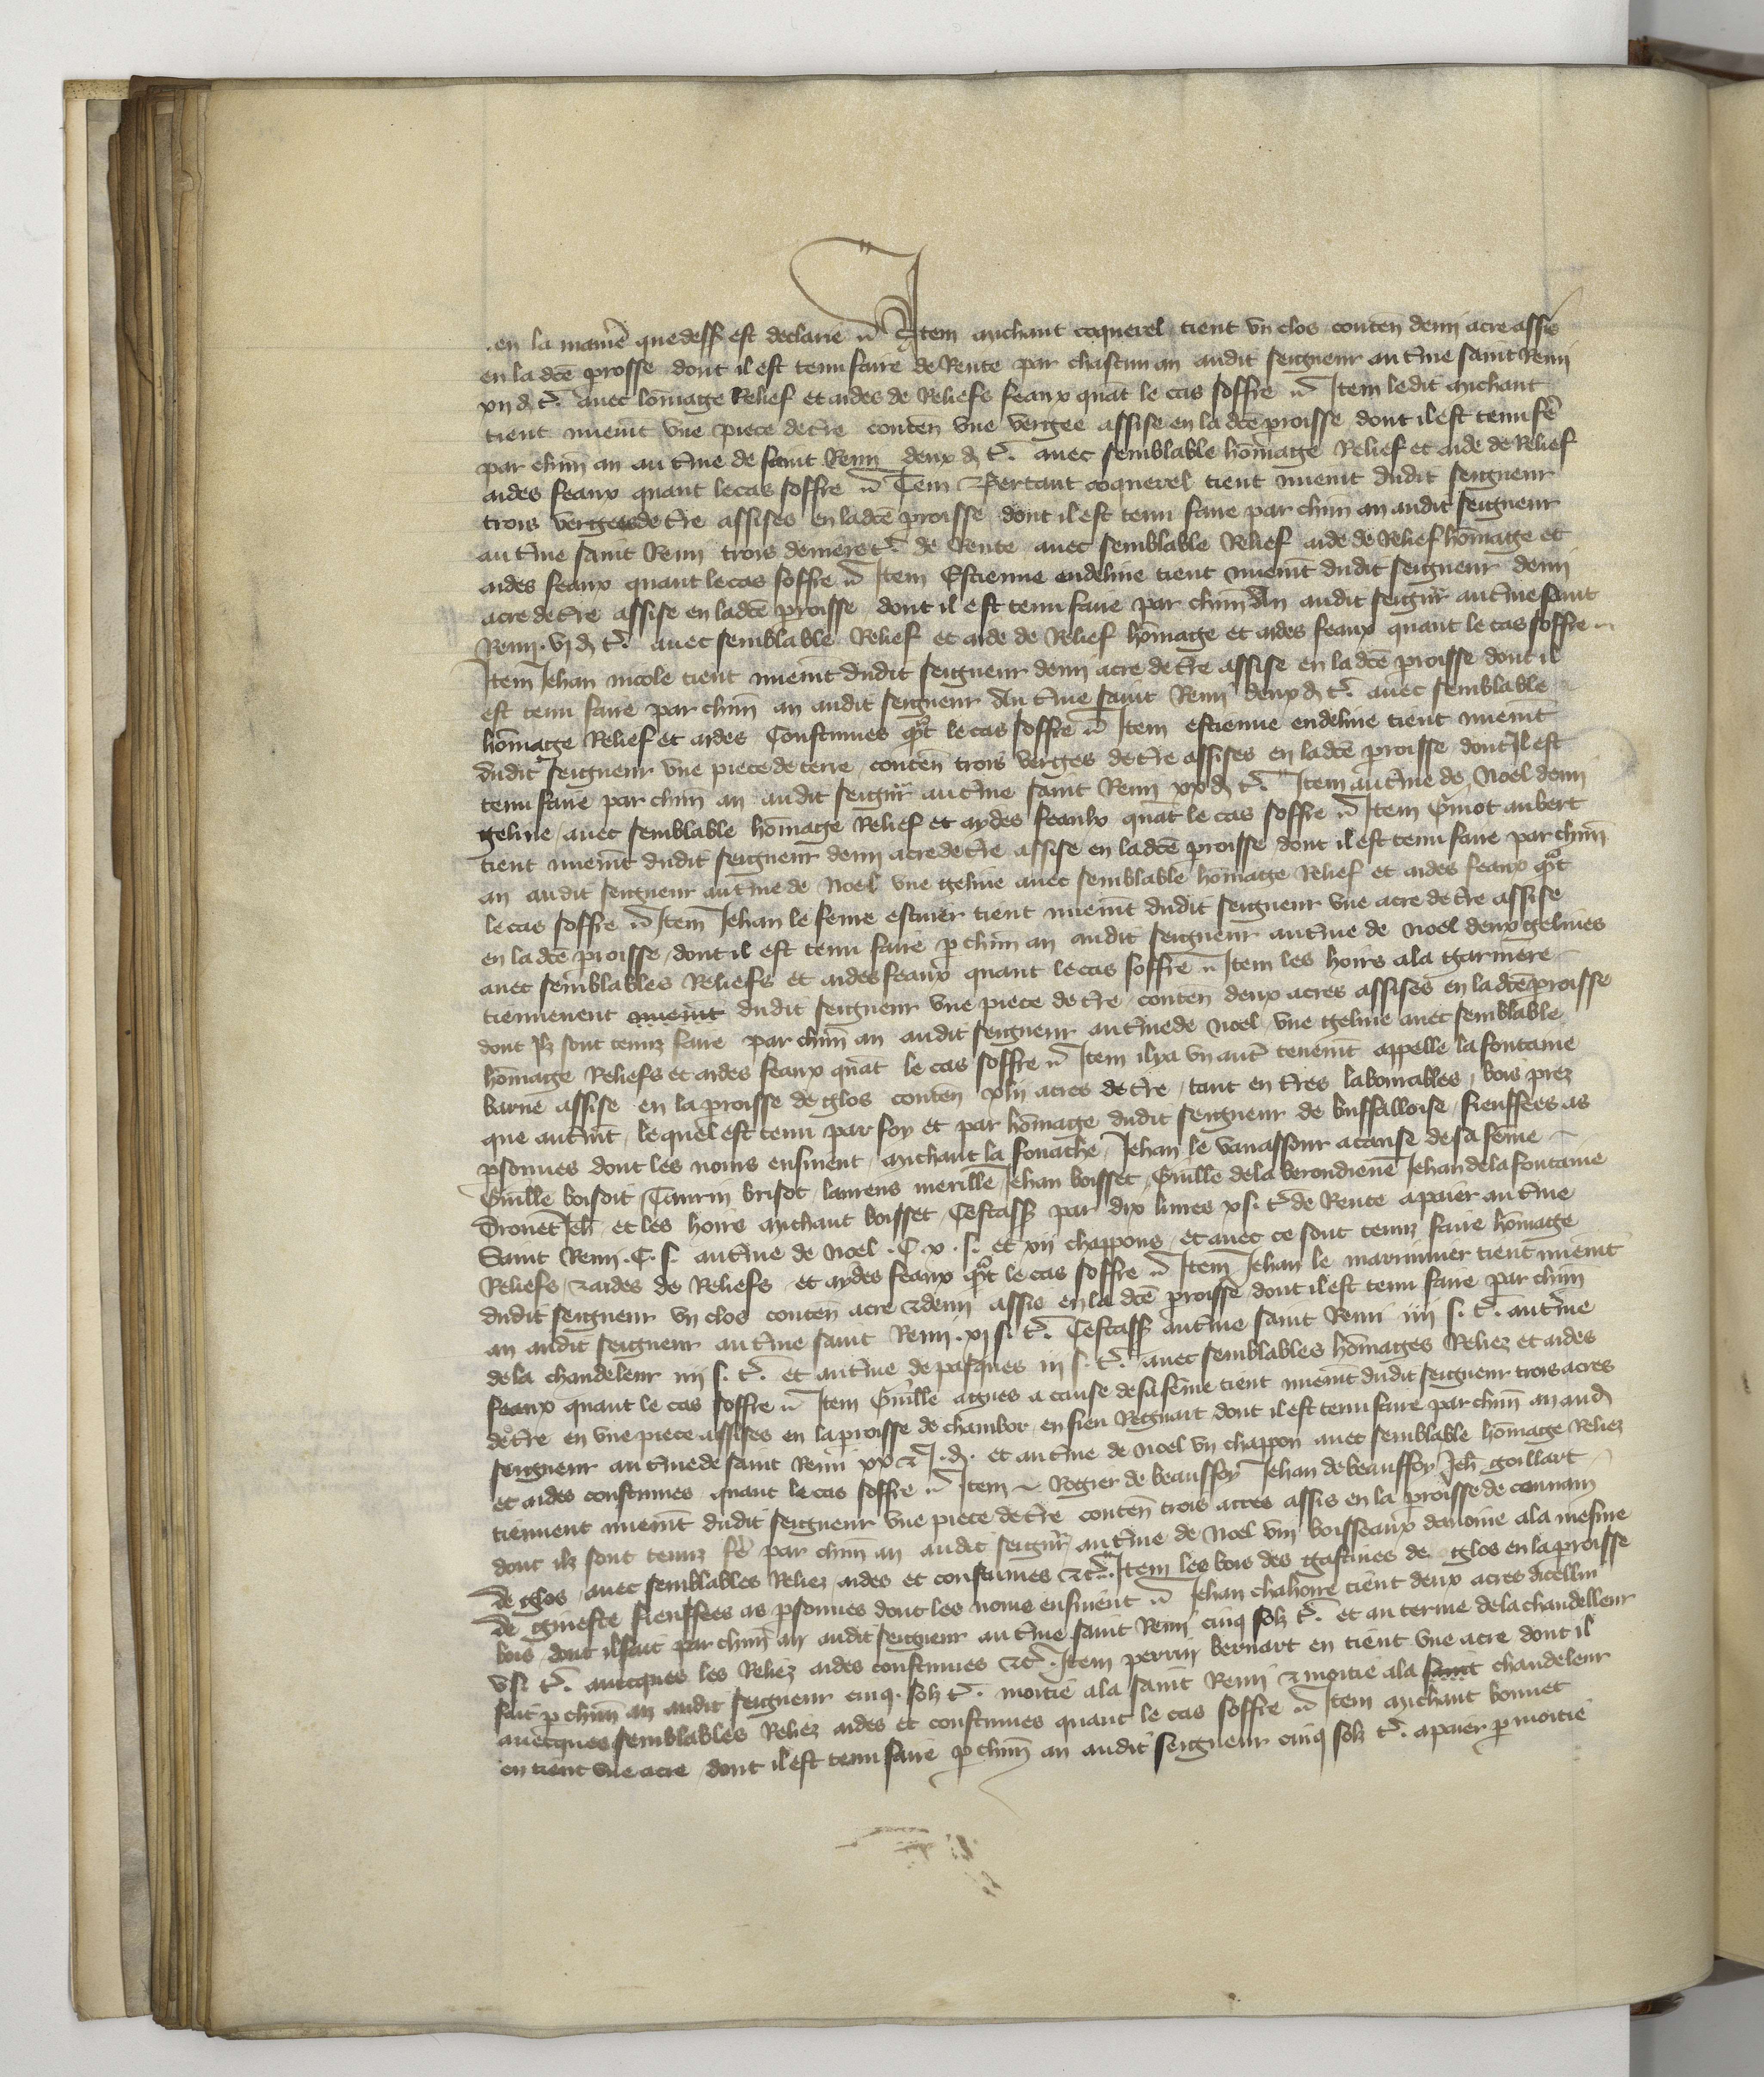 en la maniē que dess est declarie Item michaut coquerel tient vn clos conten demi acre assis
en la dcē prosse dont il est tenu faire de Rente par chascun an audit seigneur au tme saint Remi
xii d t. auec lōmage Relief et aides de Reliefs feaux quāt le cas soffre Item ledit michaut
tient nuemt vne piece de tre conten vne vergee assise en la dcē proisse dont il est tenu fe
par chun an au tme de saint Remi deux d t. auec semblable hōmage Relief et aide de Relief
aides feaux quant le cas soffre Item coquerel tient nuemt dudit seigneur
trois vergees de tre assises en ladcē proisse dont il est tenu faire par chun an audit seigneur
au tme saint Remi trois deniers t. de Rente auec semblable Relief aide de Relief hōmage et
aides feaux quant le cas soffre Item Estienne endeline tient nuemt dudit seigneur demi
acre de tre assise en ladcē proisse dont il est tenu faire par chun An audit seignr au tme saint
Remi . vi d t. auec semblable Relief et aide de Relief hōmage et aides feaux quant le cas soffre
Item Jehan nicole tient nuemt dudit seigneur demi acre de tre assise en la dcē proisse dont il
est tenu faire par chun an audit seigneur Au tme saint Remi deux d t. auec semblable
hōmage Relief et aides Coustumes qt le cas soffre Item estienne endeline tient nuemt
dudit seigneur vne piece de terre conten trois verges de tre assises en ladcē proisse dont Il est
tenu faire par chun an audit seignr au tme saint Remi xx d t. Item au tme de Noel demi
geline auec semblable hōmage Relief et aydes feaulx quāt le cas soffre Item Guiot aubert
tient nuemt dudit seigneur demi acre de tre assise en ladcē proisse dont il est tenu faire par chun
an audit seigneur au tme de Noel vne geline auec semblable hōmage Relief et aides feaux qt
le cas soffre Item Jehan le feure escuier tient nuemt dudit seigneur vne acre de tre assise
en la dcē proisse dont il est tenu faire p chun an audit seigneur au tme de noel deux gelines
auec semblables Reliefs et aides feaux quant le cas soffre Item les hoirs a la garniere
tiennent nuemt dudit seigneur vne piece de tre conten deux acres assises en la dcē proisse
dont Ilz sont tenuz faire par chun an audit seigneur au tme de noel vne geline auec semblable
hōmage Reliefs et aides feaux quāt le cas soffre Item il ya vn autr tenemt appelle la fontaine
assise en la proisse de glos conten xlii acres de tre tant en tres labourables bois prez
que autmt lequel est tenu par foy et par hōmage dudit seigneur de buffalloise fieuffees as
psonnes dont les noms ensuient michaut la fouache Jehan le vauassour a cause de sa feme
Guille boisoit Taurin brisot laurens merille Jehan boisset Guille de la berondiene Jehan de la fontaine
Drouet Jeh et les hoirs michaut boisset Cestass par dix liures x s. t de Rente a paier au tme
Saint Remi . C. s. au tme de Noel . C. x . s. et xii chappons et auec ce sont tenuz faire hōmage
Reliefs aides de Reliefs et aydes feaux qt le cas soffre Item Jehan le marinnier tient nuemt
dudit seigneur vn clos conten acre demi assis en la dcē proisse dont il est tenu faire par chun
an audit seigneur au tme saint Remi . xi s. t. Cestass au tme saint Remi iiii s. t. au tme
de la chandeleur iiii s. t. et au tme de pasques iii s. t. auec semblables hōmages Reliez et aides
feaux quant le cas soffre Item Guille agnes a cause de sa feme tient nuemt dudit seigneur trois acres
de tre en vne piece assises en la proisse de chambor en fieu Regnart dont il est tenu faire par chun an aud
seigneur au tme de saint Remi xx I. d. et au tme de Noel vn chappon auec semblable hōmage Reliez
et aides coustumes quant le cas soffre Item Rogier de beauffoy Jehan de beauffoy Jeh goillart
tiennent nuemt dudit seigneur vne piece de tre conten trois acres assis en la proisse de connain
dont ilz sont tenuz fe par chun an audit seignr au tme de Noel viii boisseaux dauoine a la mesure
de glos auec semblables Reliez aides et coustumes Item les bois des gastines de glos en la proisse
de gineste fieuffees as psonnes dont les noms ensuient Jehan chahoure tient deux acres dicellui
bois dont il fait par chun an audit seigneur au tme saint Remi cinq solz t. et au terme de la chandelleur
v s. t. auecques les Reliez aides coustumes Item perrin bernart en tient vne acre dont il
fait p chun an audit seigneur cinq solz t. moitie a la saint Remi moitie a la saint chandeleur
auecques semblables Reliez aides et coustumes quant le cas soffre Item michaut bonnet
en tient vne acre dont il est tenu faire p chun an audit seigneur cinq solz t. a paier p moitie